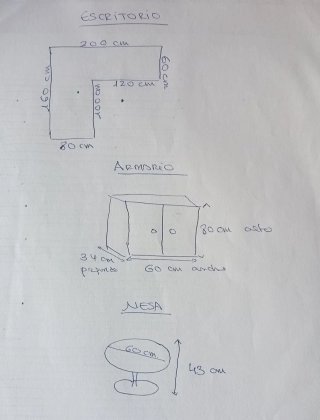 ESCRITORIO
200 cm
60 cm
160 cm
120 cm
100 cm
80 cm
ARMARIO
80 cm alto
34 cm
60 cm ancho
MESA
60 cm
43 cm